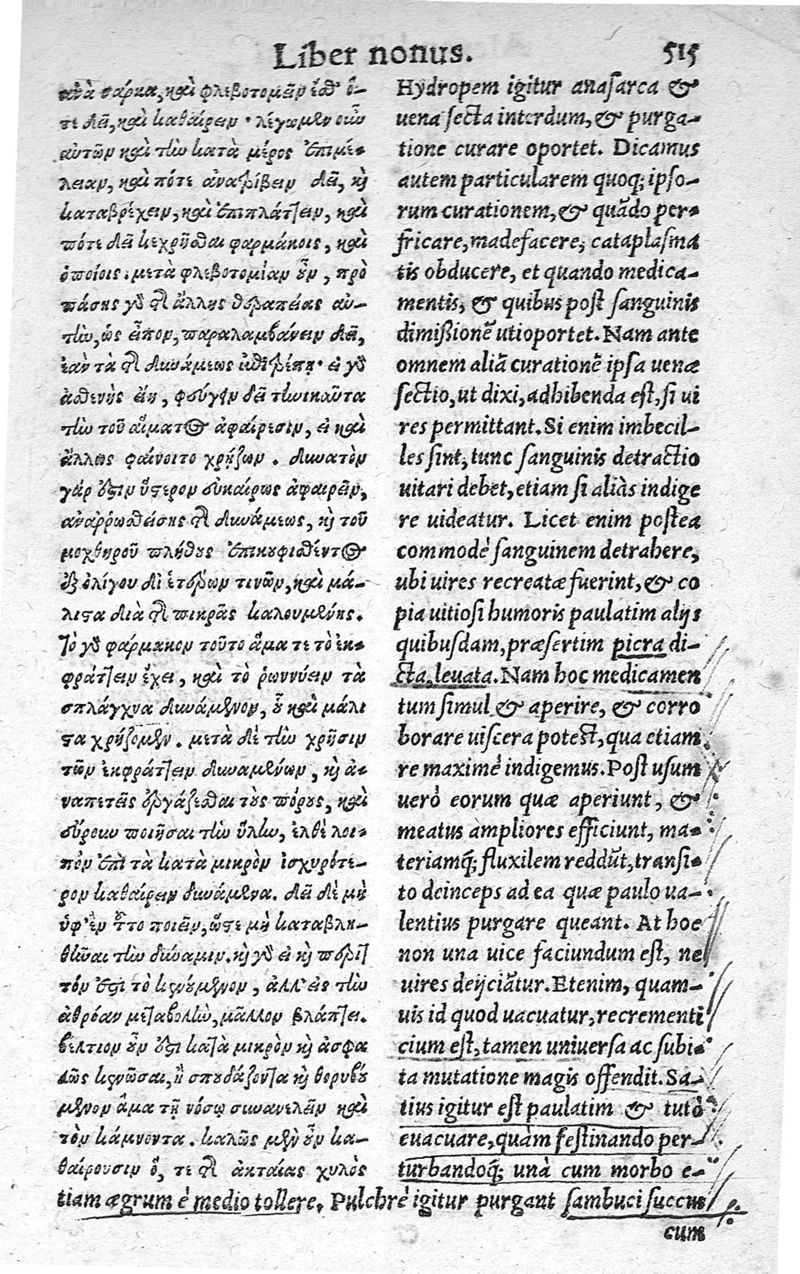 Liber nonus. 515
ἀνὰ σάρκα, καὶ φλεβοτομεῖν ἔσθ' ὅ-
τε δεῖ, καὶ καθαίρειν· λέγωμεν οὖν
αὐτῶν καὶ τὴν κατὰ μέρος ἐπιμέ-
λειαν, καὶ πότε ἀνατρίβειν δεῖ, καὶ
καταβρέχειν, καὶ ἐπιπλάττειν, καὶ
πότε δεῖ κεχρῆσθαι φαρμάκοις, καὶ
ὁποίοις. μετὰ φλεβοτομίαν οὖν, πρὸ
πάσης γὰρ τῆς ἄλλης θεραπείας αὐ-
τὴν, ὡς εἶπον, παραλαμβάνειν δεῖ,
ἐὰν τὰ τῆς δυνάμεως ἐπιτρέπῃ· εἰ γὰρ
ἀσθενὴς εἴη, φεύγειν δεῖ τηνικαῦτα
τὴν τοῦ αἵματος ἀφαίρεσιν, εἰ καὶ
ἄλλως φαίνοιτο χρῄζων. δυνατὸν
γάρ ἐστιν ὕστερον εὐκαίρως ἀφαιρεῖν,
ἀναῤῥωσθείσης τῆς δυνάμεως, καὶ τοῦ
μοχθηροῦ πλήθους ἐπικουφισθέντος
ἐξ ὀλίγου δι' ἑτέρων τινῶν, καὶ μά-
λιστα διὰ τῆς πικρᾶς καλουμένης.
Τὸ γὰρ φάρμακον τοῦτο ἅμα τε τὸ ἐκ-
φράττειν ἔχει, καὶ τὸ ῥωννύειν τὰ
σπλάγχνα δυνάμενον, οὗ καὶ μάλι
στα χρῄζομεν. μετὰ δὲ τὴν χρῆσιν
τῶν ἐκφράττειν δυναμένων, καὶ ἀ-
ναπετεῖς ἐργάζεσθαι τοὺς πόρους, καὶ
εὔρουν ποιῆσαι τὴν ὕλην, ἐλθὲ λοι-
πὸν ἐπὶ τὰ κατὰ μικρὸν ἰσχυρότε-
ρον καθαίρειν δυνάμενα. δεῖ δὲ μὴ
ὑφ' ἓν τοῦτο ποιεῖν, ὥστε μὴ καταβλη-
θῆναι τὴν δύναμιν. καὶ γὰρ εἰ καὶ περιτ
τόν ἐστι τὸ κενούμενον, ἀλλ' εἰς τὴν
ἀθρόαν μεταβολὴν, μᾶλλον βλάπτει.
βέλτιον οὖν ἐστι κατὰ μικρὸν καὶ ἀσφα
λῶς κενῶσαι, ἢ σπουδάζοντα καὶ θορυβού
μενον ἅμα τῇ νόσῳ συνανελεῖν καὶ
τὸν κάμνοντα. καλῶς μὲν οὖν κα-
θαίρουσιν ὅ, τε τῆς ἀκταίας χυλὸς
Hydropem igitur anasarca &
uena secta interdum, & purga-
tione curare oportet. Dicamus
autem particularem quoq; ipso-
rum curationem, & quādo per-
fricare, madefacere, cataplasma
tis obducere, et quando medica-
mentis, & quibus post sanguinis
dimissionē uti oportet. Nam ante
omnem aliā curationē ipsa uenæ
sectio, ut dixi, adhibenda est, si ui
res permittant. Si enim imbecil-
les sint, tunc sanguinis detractio
uitari debet, etiam si aliàs indige
re uideatur. Licet enim postea
commodè sanguinem detrahere,
ubi uires recreatæ fuerint, & co
pia uitiosi humoris paulatim alijs
quibusdam, præsertim picra di-
cta, leuata. Nam hoc medicamen
tum simul & aperire, & corro
borare uiscera potest, qua etiam
re maximè indigemus. Post usum
uerò eorum quæ aperiunt, &
meatus ampliores efficiunt, ma-
teriamq; fluxilem reddūt, transi-
to deinceps ad ea quæ paulo ua-
lentius purgare queant. At hoc
non una uice faciundum est, ne
uires deijciātur. Etenim, quam-
uis id quod uacuatur, recrementi
cium est, tamen uniuersa ac subi-
ta mutatione magis offendit. Sa-
tius igitur est paulatim & tutò
euacuare, quàm festinando per-
turbandoq; unà cum morbo e-
tiam ægrum è medio tollere. Pulchrè igitur purgant sambuci succus
cum